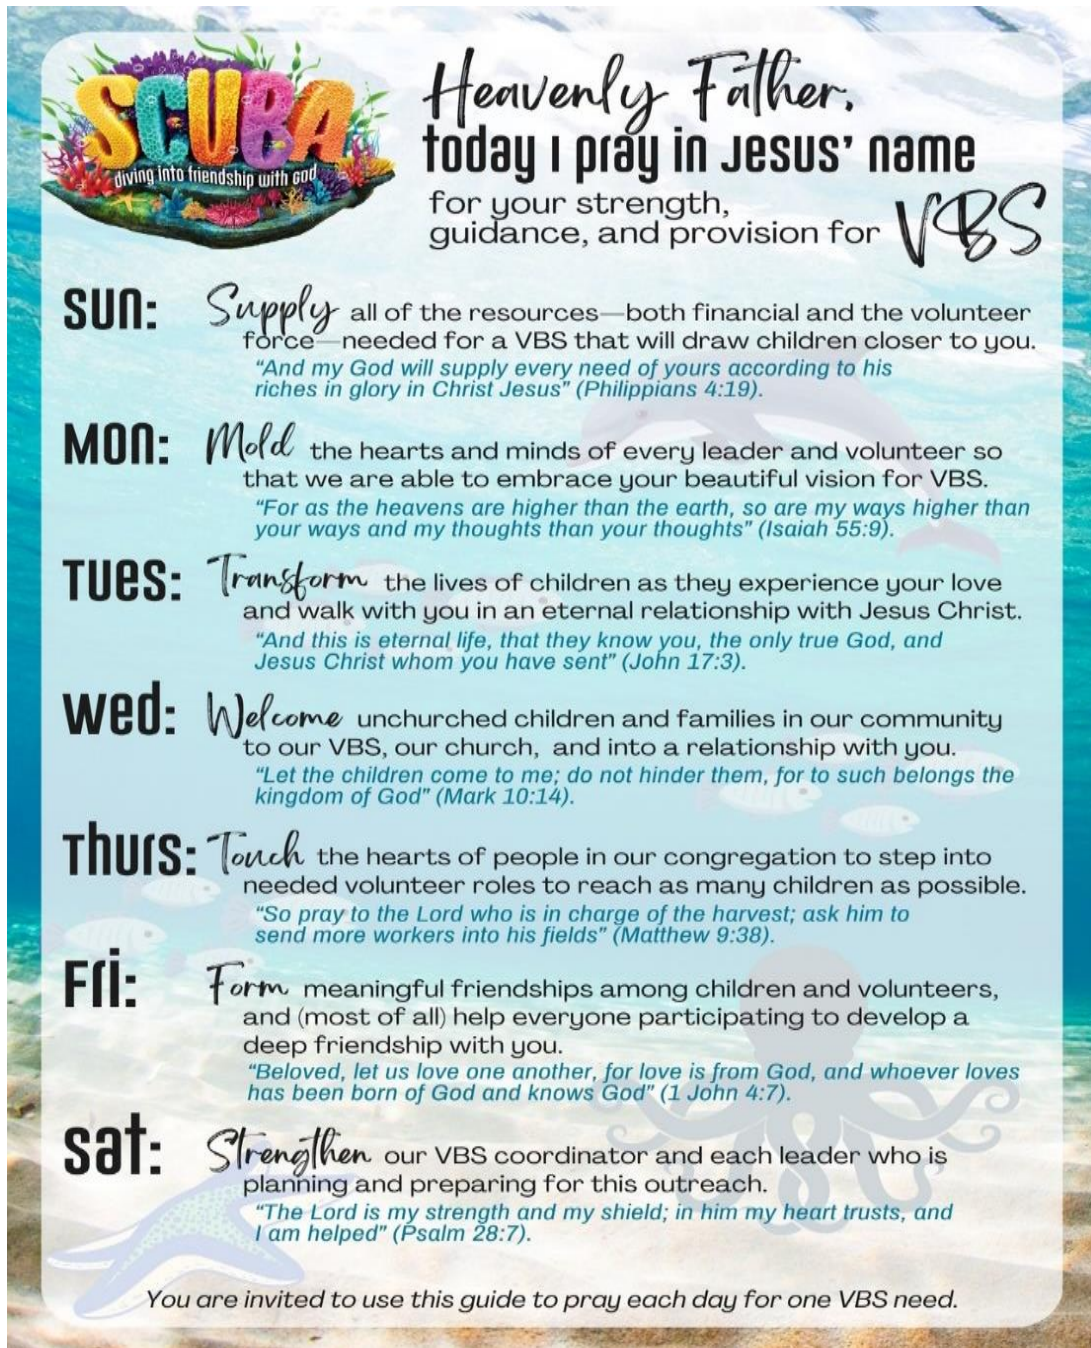 SCUBA
diving into friendship with God
Heavenly Father,
today I pray in Jesus’ name
for your strength,
guidance, and provision for VBS
SUN: Supply all of the resources—both financial and the volunteer
force—needed for a VBS that will draw children closer to you.
“And my God will supply every need of yours according to his
riches in glory in Christ Jesus” (Philippians 4:19).
MON: Mold the hearts and minds of every leader and volunteer so
that we are able to embrace your beautiful vision for VBS.
“For as the heavens are higher than the earth, so are my ways higher than
your ways and my thoughts than your thoughts” (Isaiah 55:9).
TUES: Transform the lives of children as they experience your love
and walk with you in an eternal relationship with Jesus Christ.
“And this is eternal life, that they know you, the only true God, and
Jesus Christ whom you have sent” (John 17:3).
wed: Welcome unchurched children and families in our community
to our VBS, our church, and into a relationship with you.
“Let the children come to me; do not hinder them, for to such belongs the
kingdom of God” (Mark 10:14).
Thurs: Touch the hearts of people in our congregation to step into
needed volunteer roles to reach as many children as possible.
“So pray to the Lord who is in charge of the harvest; ask him to
send more workers into his fields” (Matthew 9:38).
Fri: Form meaningful friendships among children and volunteers,
and (most of all) help everyone participating to develop a
deep friendship with you.
“Beloved, let us love one another, for love is from God, and whoever loves
has been born of God and knows God” (1 John 4:7).
sat: Strengthen our VBS coordinator and each leader who is
planning and preparing for this outreach.
“The Lord is my strength and my shield; in him my heart trusts, and
I am helped” (Psalm 28:7).
You are invited to use this guide to pray each day for one VBS need.